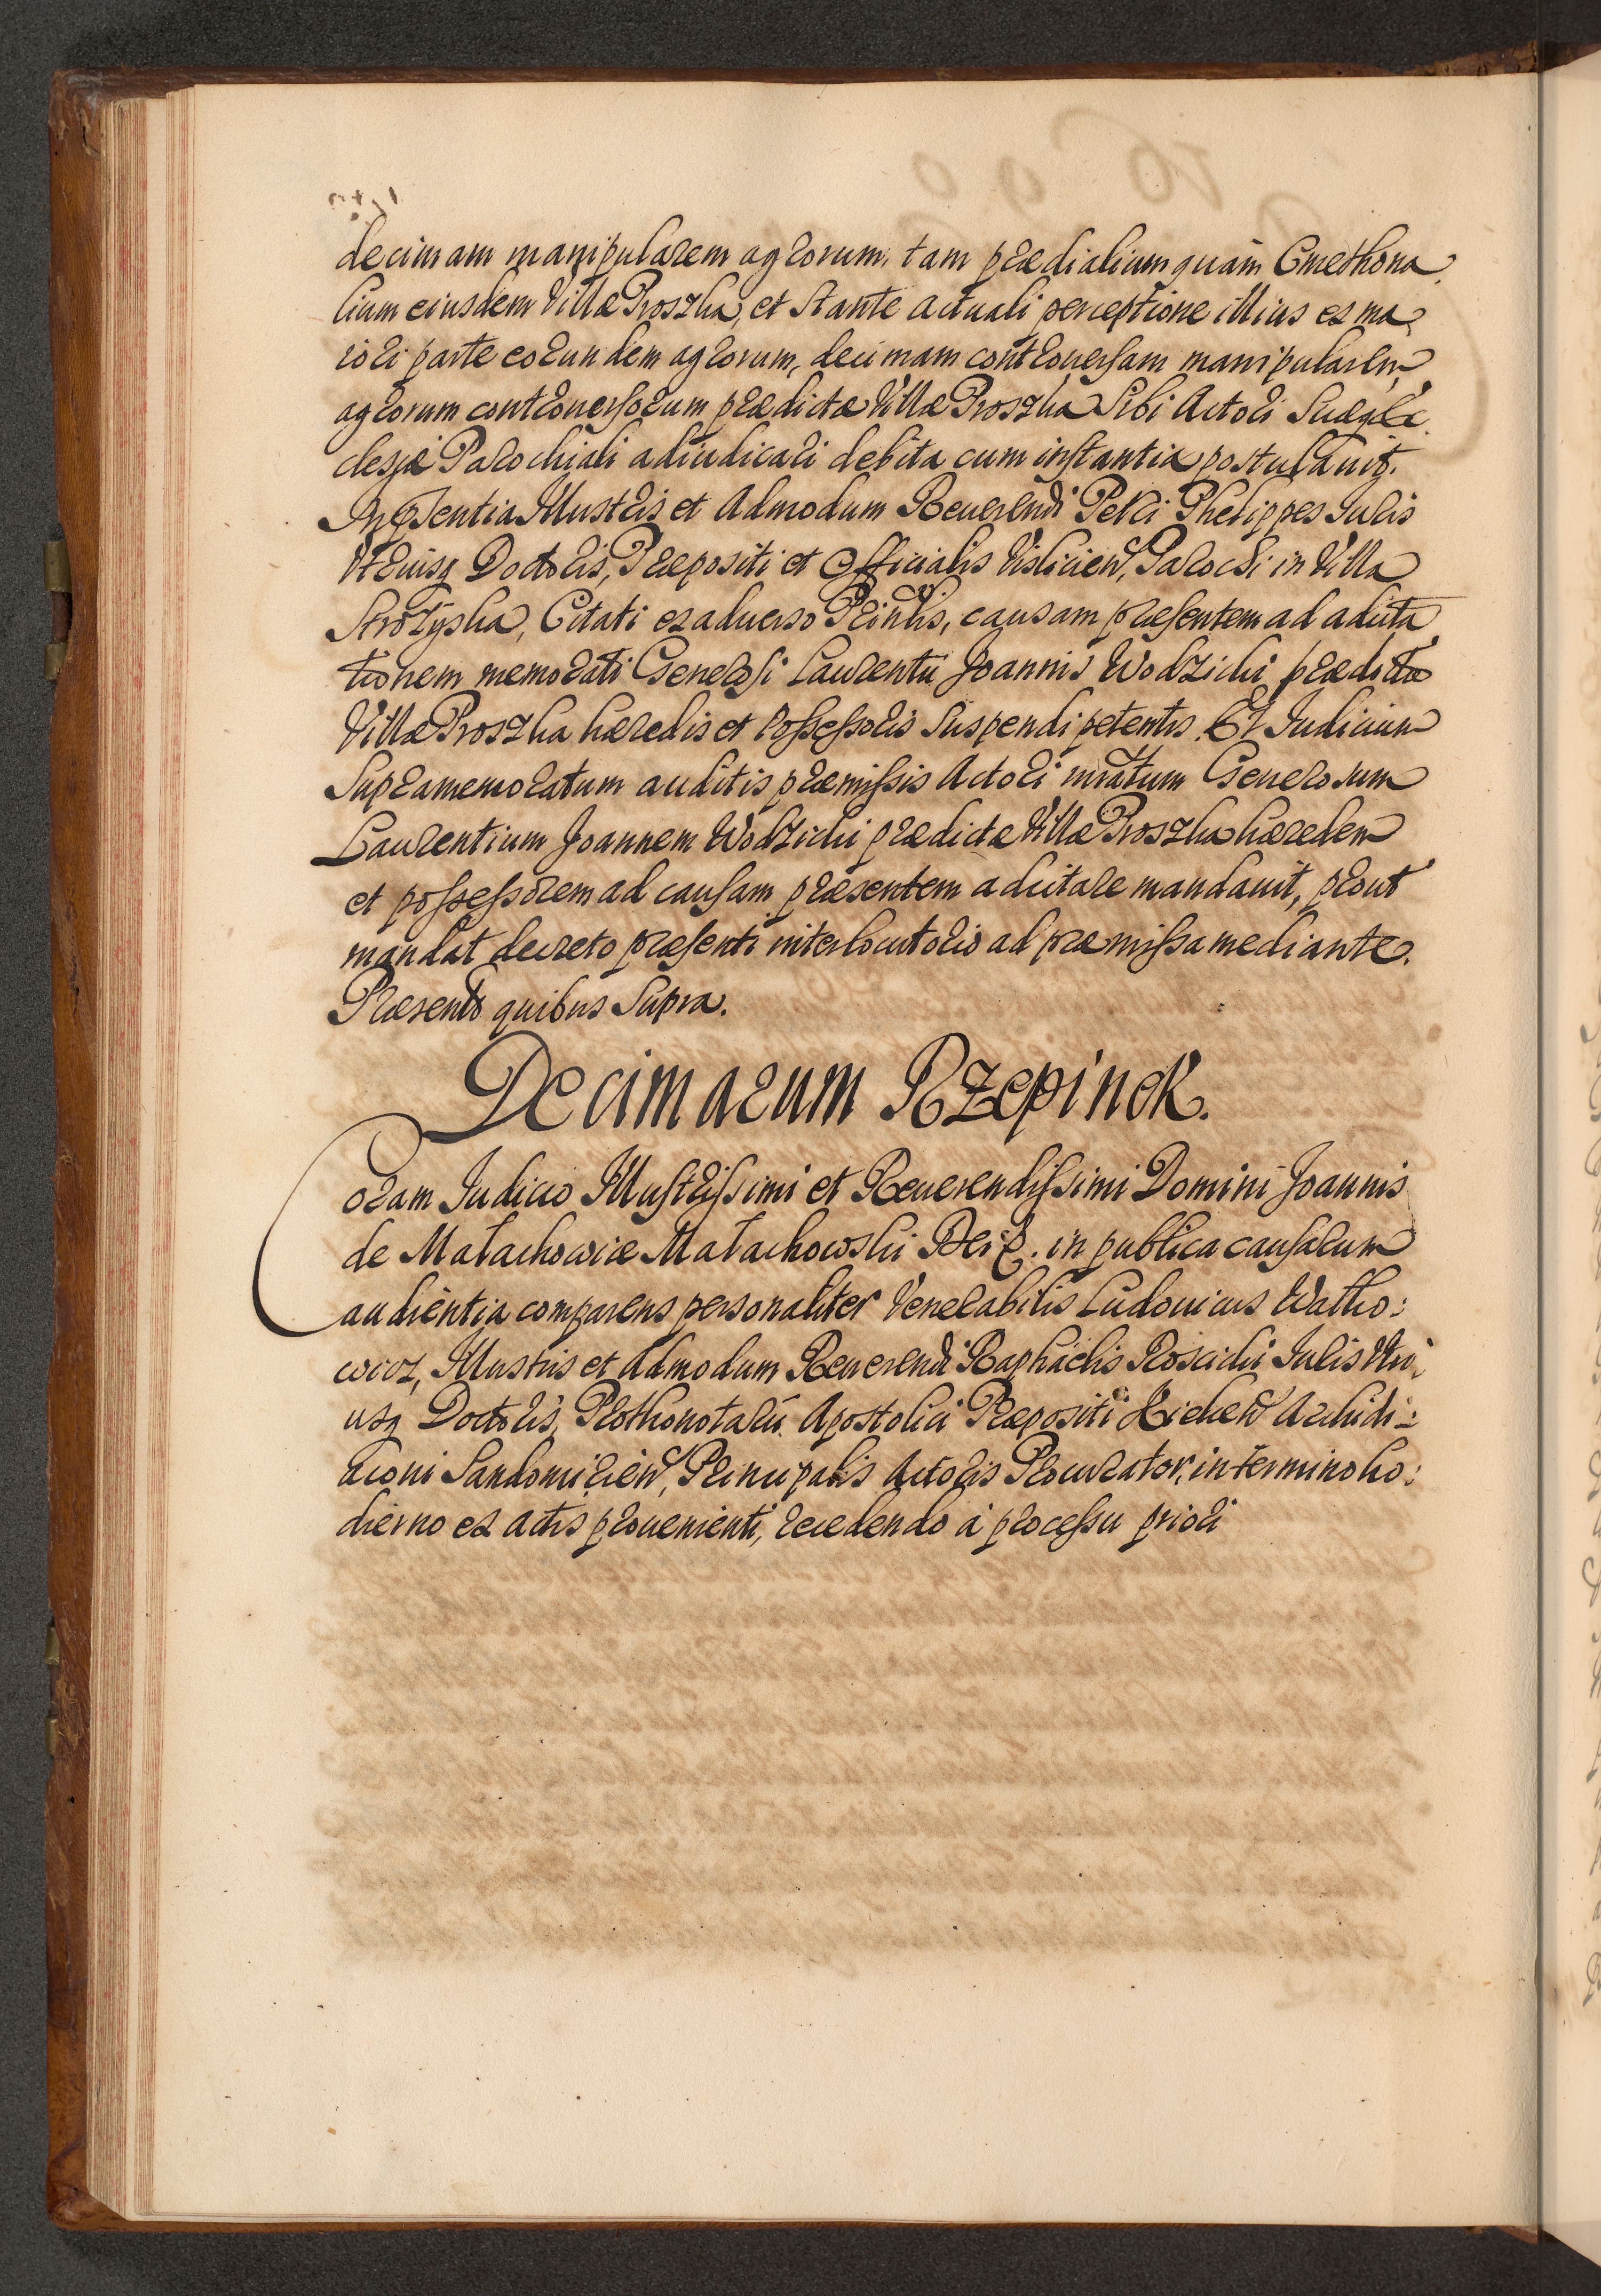 decimam manipularem agrorum tam prædialium quàm Cmethona
lium eiusdem Villæ Proszka, et Stante actuali perceptione illius ex ma
iori parte eorundem agrorum, decimam controuersam manipularem
agrorum controuersorum prædictæ Villæ Proszka Sibi Actori Suæq₃ Ec
clesiæ Parochiali adiudicari debita cum instantia postulauit.
In pñsentia Illustris et Admodum Reuerendi Petri Phelippes Iuris
Vtriusq₃ Doctoris, Præpositi et Officialis Visliciens, Parochi in Villa
Strozyska, Citati ex aduerso Prinlis, causam præsentem ad adcita
tionem memorati Generosi Laurentii Joannis Wodzicki prædictæ
Villæ Proszka hæredis et Possessoris Suspendi petentis. Et Iudicium
Supramemoratum auditis præmissis Actori mratum Generosum
Laurentium Joannem Wodzicki prædictæ Villæ Proszka hæredem
et possessorem ad causam præsentem adcitare mandauit, prout
mandat decreto præsenti interlocutorio ad præmissa mediante.
Præsentib quibus Supra.
Decimarum Rzepinek.
Coram Iudicio Illustrissimi et Reuerendissimi Domini Joannis
de Małachowice Małachowski Dei &. in publica causarum
audientia comparens personaliter Venerabilis Ludouicus Watko:
wicz, Illustris et Admodum Reuerendi Raphaelis Roscicki Iuris Vtri
usq₃ Doctoris, Prothonotarii Apostolici Præpositi Kielcen Archidi:
aconi Sandomirien, Principalis Actoris Procurator, in termino ho:
dierno ex actis prouenienti, recedendo à processu priori